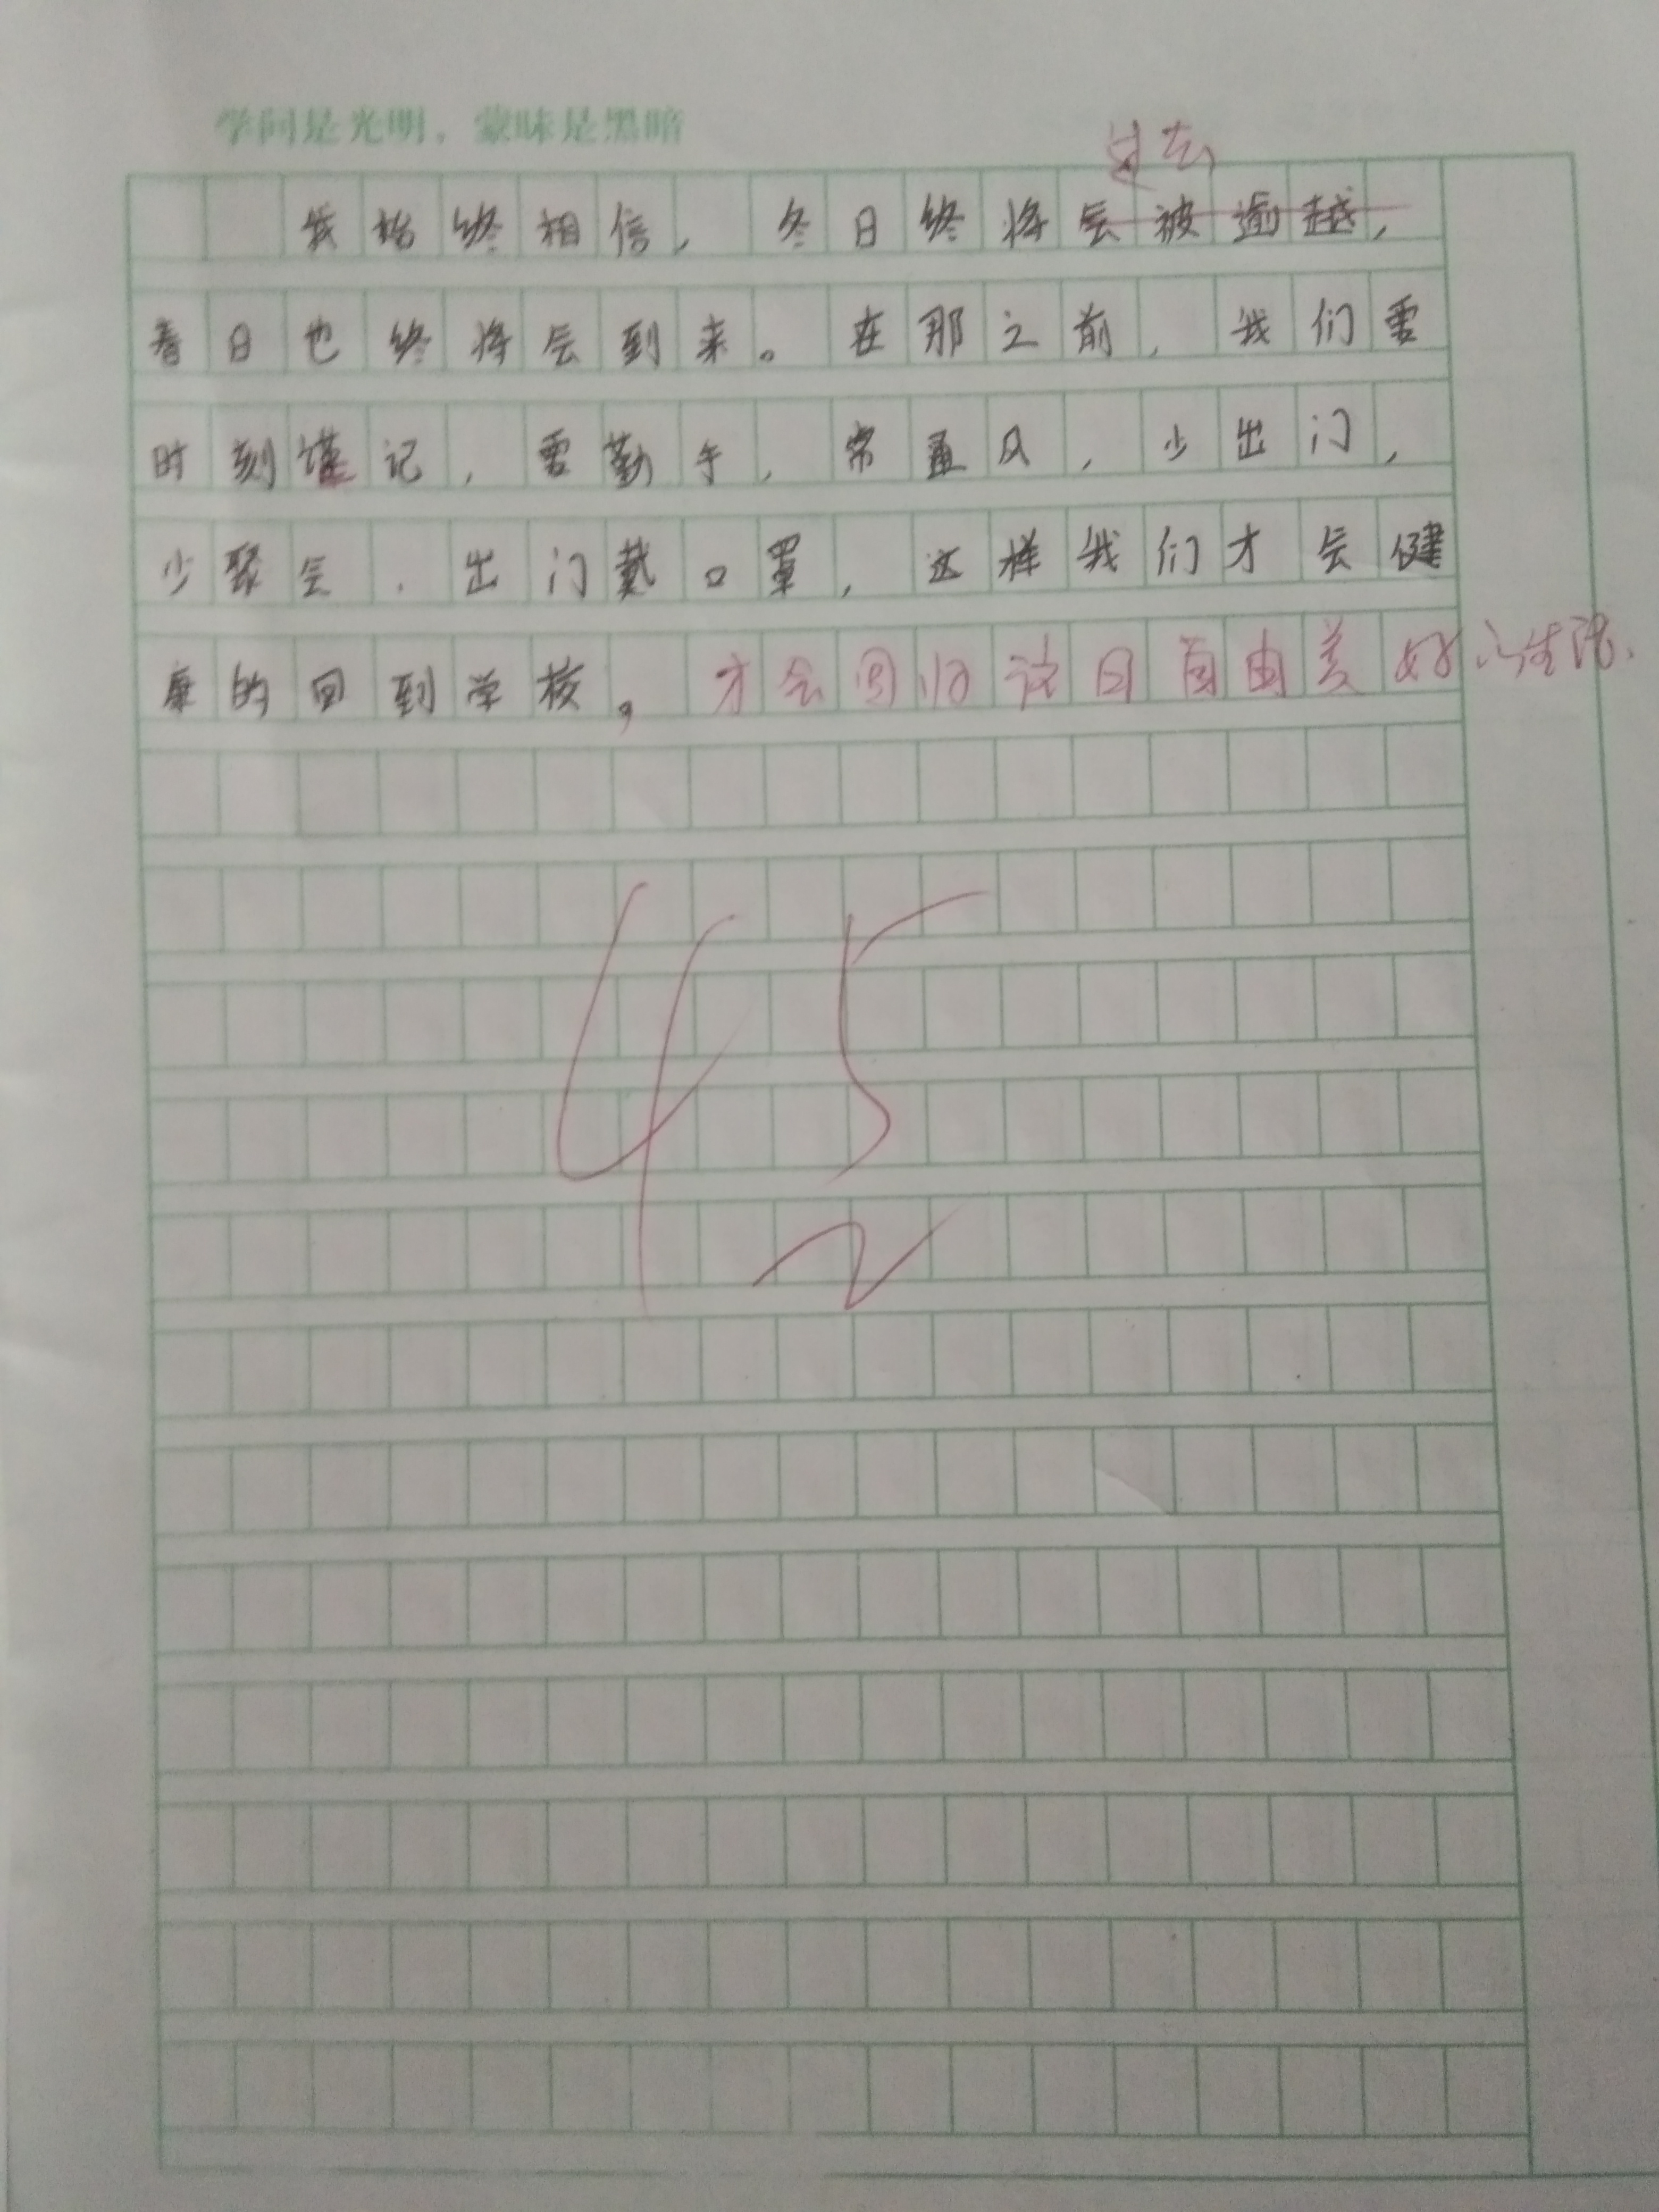 学问是光明，蒙昧是黑暗
过去
我始终相信，冬日终将会被逾越，
春日也终将会到来。在那之前，我们要
时刻谨记，要勤手，常通风，少出门，
少聚会，出门戴口罩，这样我们才会健
康的回到学校，才会回归往日自由美好的生活.
45